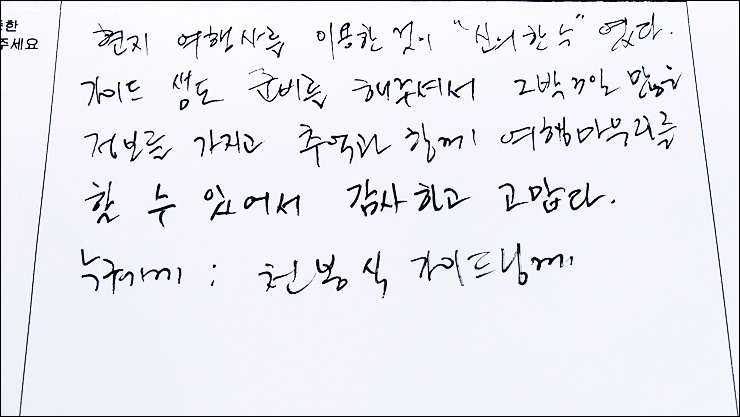 한
주세요
현지 여행사를 이용한 것이 "신의 한 수" 였다.
가이드 쌤도 준비를 해주셔서 2박3일 많은
정보를 가지고 추억과 함께 여행마무리를
할 수 있어서 감사하고 고맙다.
누구에게 : 천봉식 가이드님께